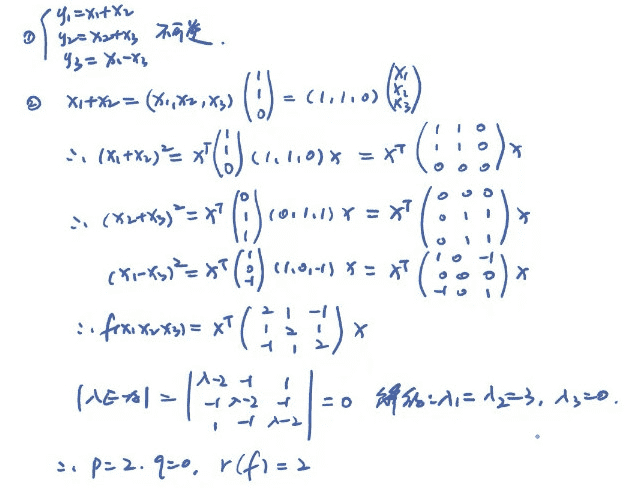 ① { y₁=x₁+x₂
y₂=x₂+x₃ 不可逆.
y₃=x₁-x₃
② x₁+x₂=(x₁,x₂,x₃)(1 1 0)=(1,1,0)(x₁ x₂ x₃)
∴ (x₁+x₂)²=xᵀ(1 1 0)(1,1,0)x=xᵀ(1 1 0 / 1 1 0 / 0 0 0)x
∴ (x₂+x₃)²=xᵀ(0 1 1)(0,1,1)x=xᵀ(0 0 0 / 0 1 1 / 0 1 1)x
(x₁-x₃)²=xᵀ(1 0 -1)(1,0,-1)x=xᵀ(1 0 -1 / 0 0 0 / -1 0 1)x
∴ f(x₁x₂x₃)=xᵀ(2 1 -1 / 1 2 1 / -1 1 2)x
|λE-A|=|λ-2 -1 1 / -1 λ-2 -1 / 1 -1 λ-2|=0 解得:λ₁=λ₂=3, λ₃=0.
∴ p=2. q=0, r(f)=2